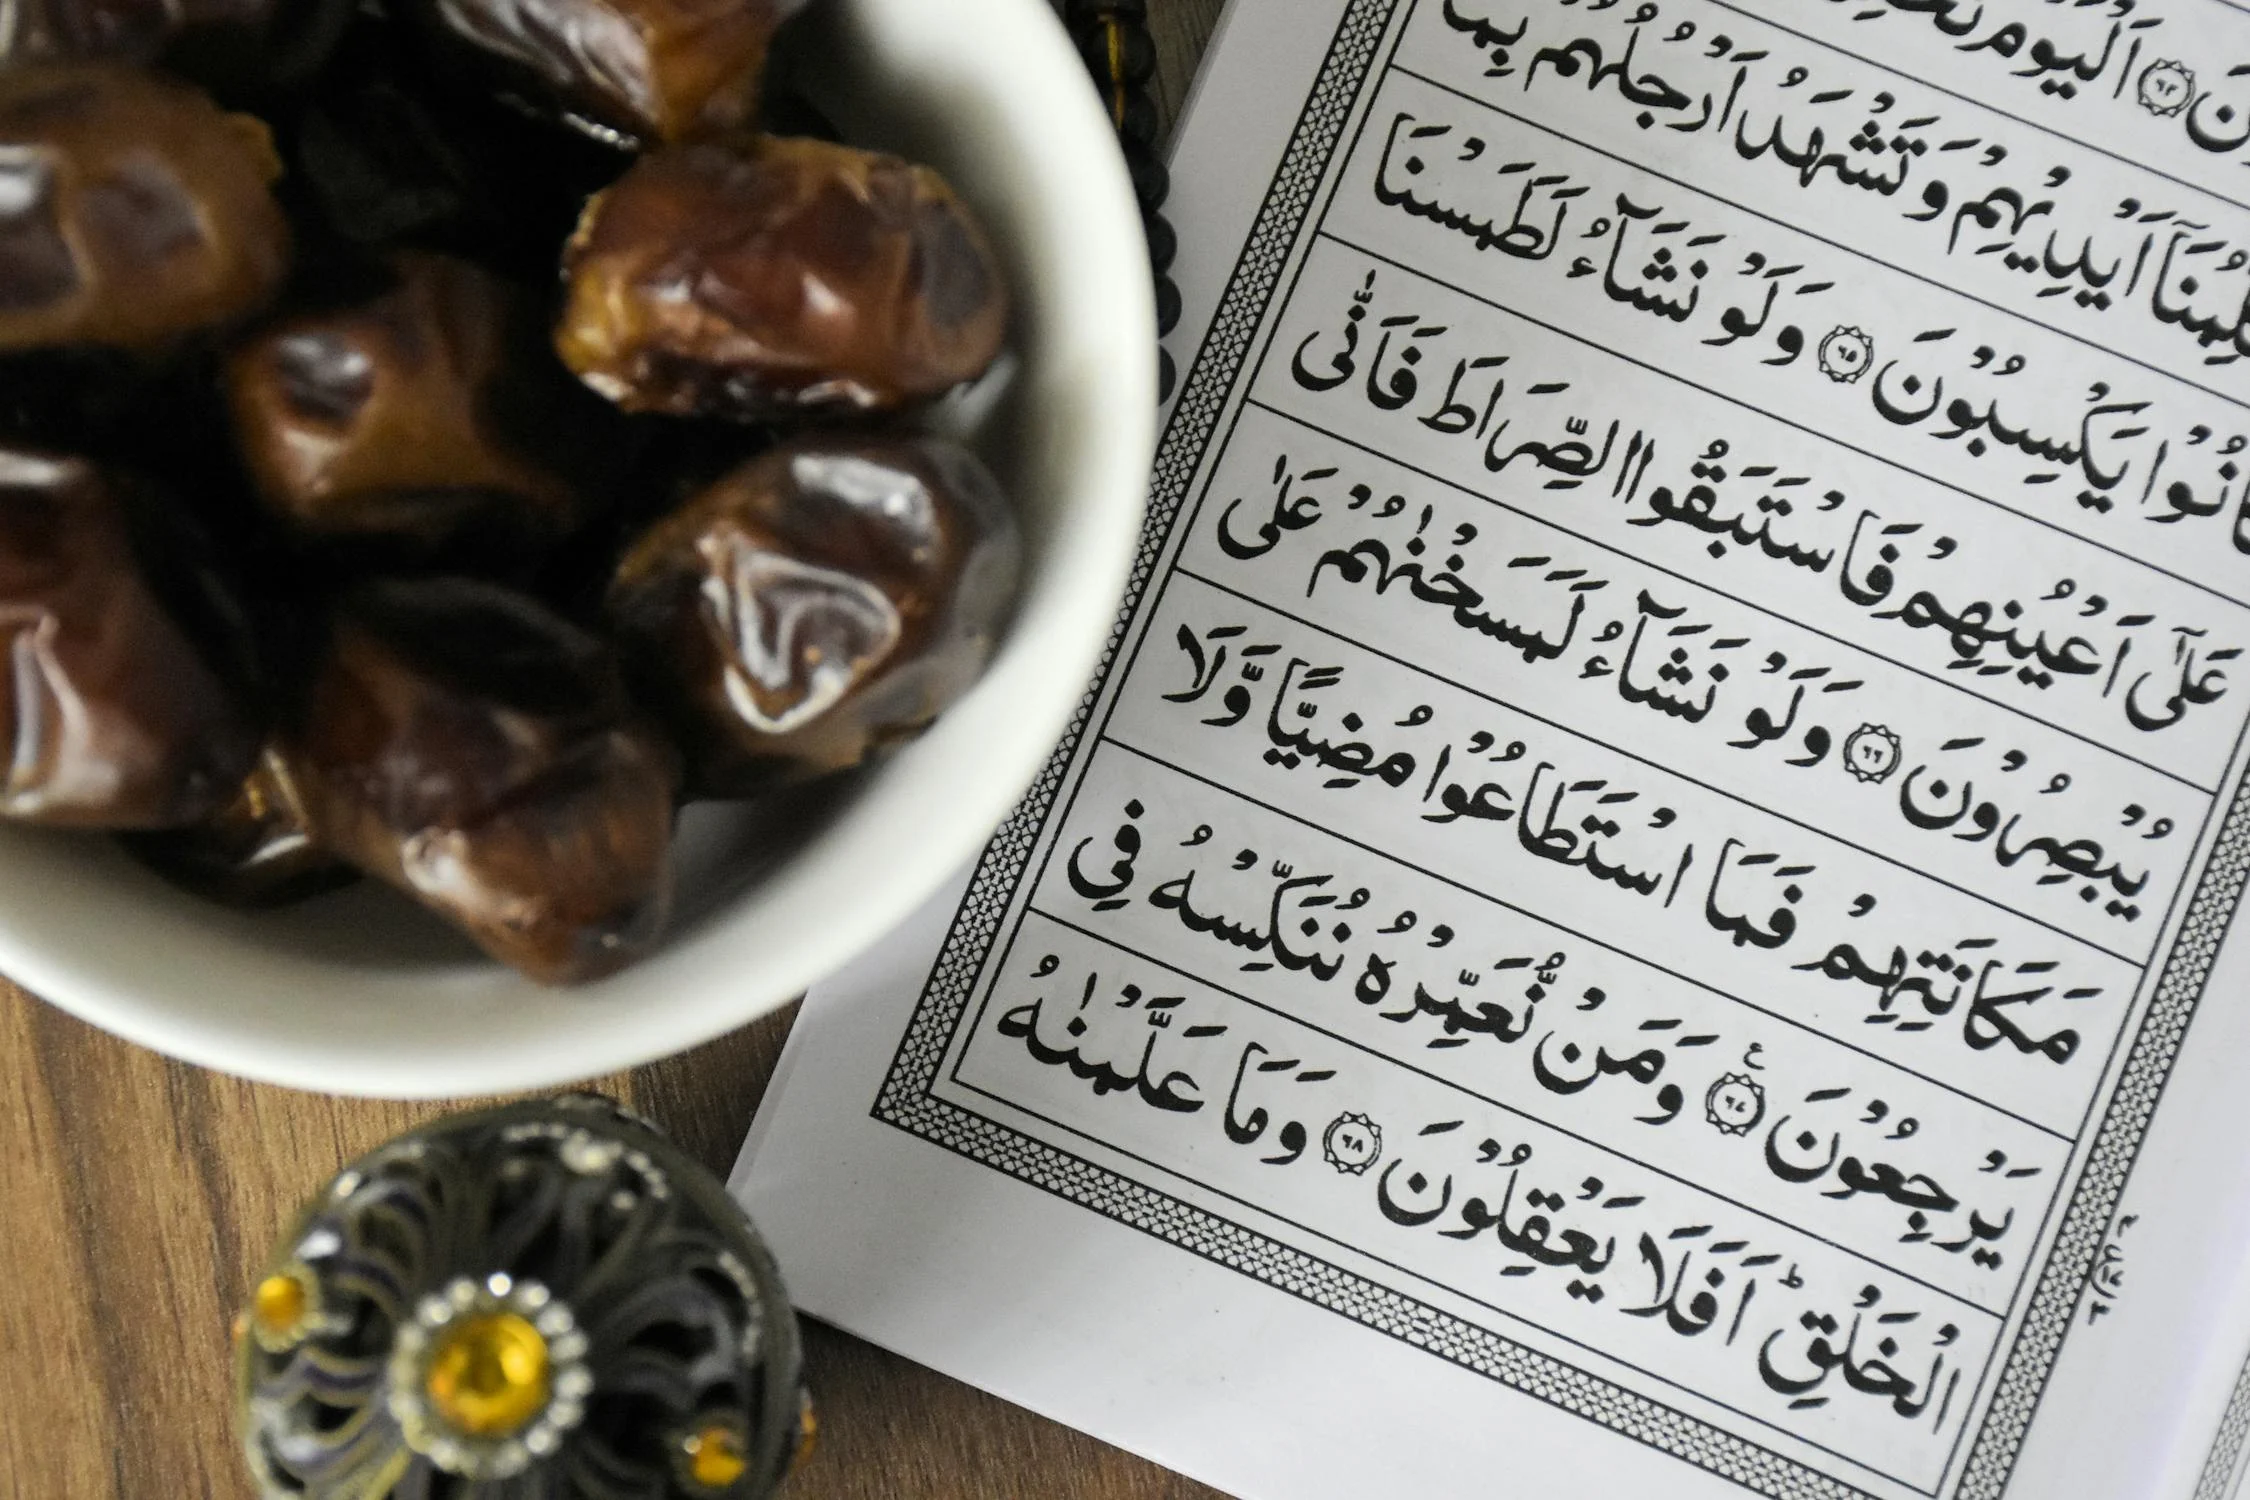 اَلْيَوْمَ
اَيْدِيْهِمْ وَتَشْهَدُ اَرْجُلُهُمْ بِمَا
كَانُوْا يَكْسِبُوْنَ ۝٦٥ وَلَوْ نَشَآءُ لَطَمَسْنَا
عَلٰۤى اَعْيُنِهِمْ فَاسْتَبَقُوا الصِّرَاطَ فَاَنّٰى
يُبْصِرُوْنَ ۝٦٦ وَلَوْ نَشَآءُ لَمَسَخْنٰهُمْ عَلٰى
مَكَانَتِهِمْ فَمَا اسْتَطَاعُوْا مُضِيًّا وَّلَا
يَرْجِعُوْنَ ۝٦٧ ع وَمَنْ نُّعَمِّرْهُ نُنَكِّسْهُ فِى
الْخَلْقِؕ اَفَلَا يَعْقِلُوْنَ ۝٦٨ وَمَا عَلَّمْنٰهُ